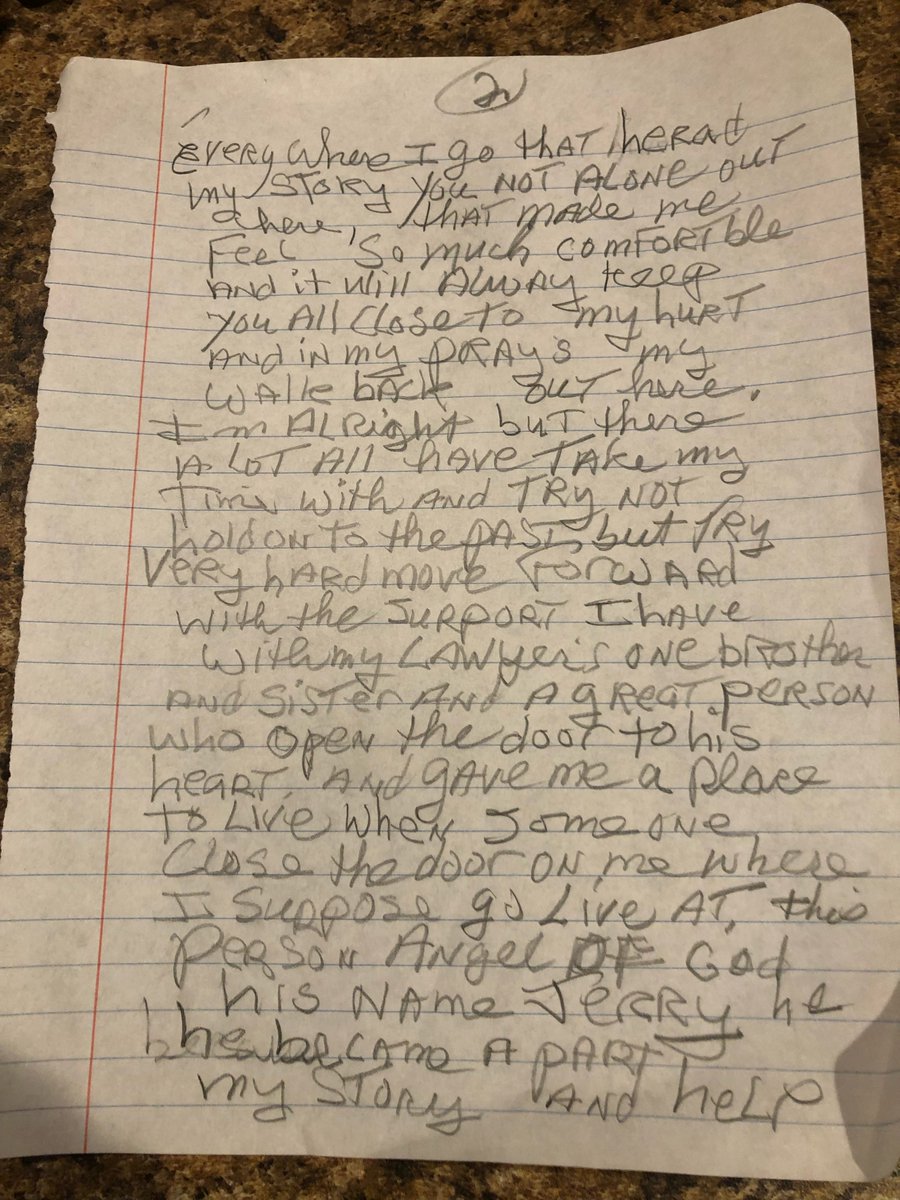 2
Every Where I go that herad
my STORY you NOT ALONE OUT
there, that made me
Feel so much comfortble
and it will Alway keep
you All close to my hurt
AND in my PRAYS my
walk back out here.
I'm Alright but there
A LOT All have TAke my
Time with AND TRY NOT
hold on To the PAST, but TRY
Very hard move Forward
with the support I have
with my LAWyer's one brother
AND Sister AND A great person
who open the door to his
heart, And gave me a place
to Live when someone
Close the door on me where
I Suppose go Live AT, this
person Angel OF God
his NAme Jerry he
he became A part
my STORY AND help